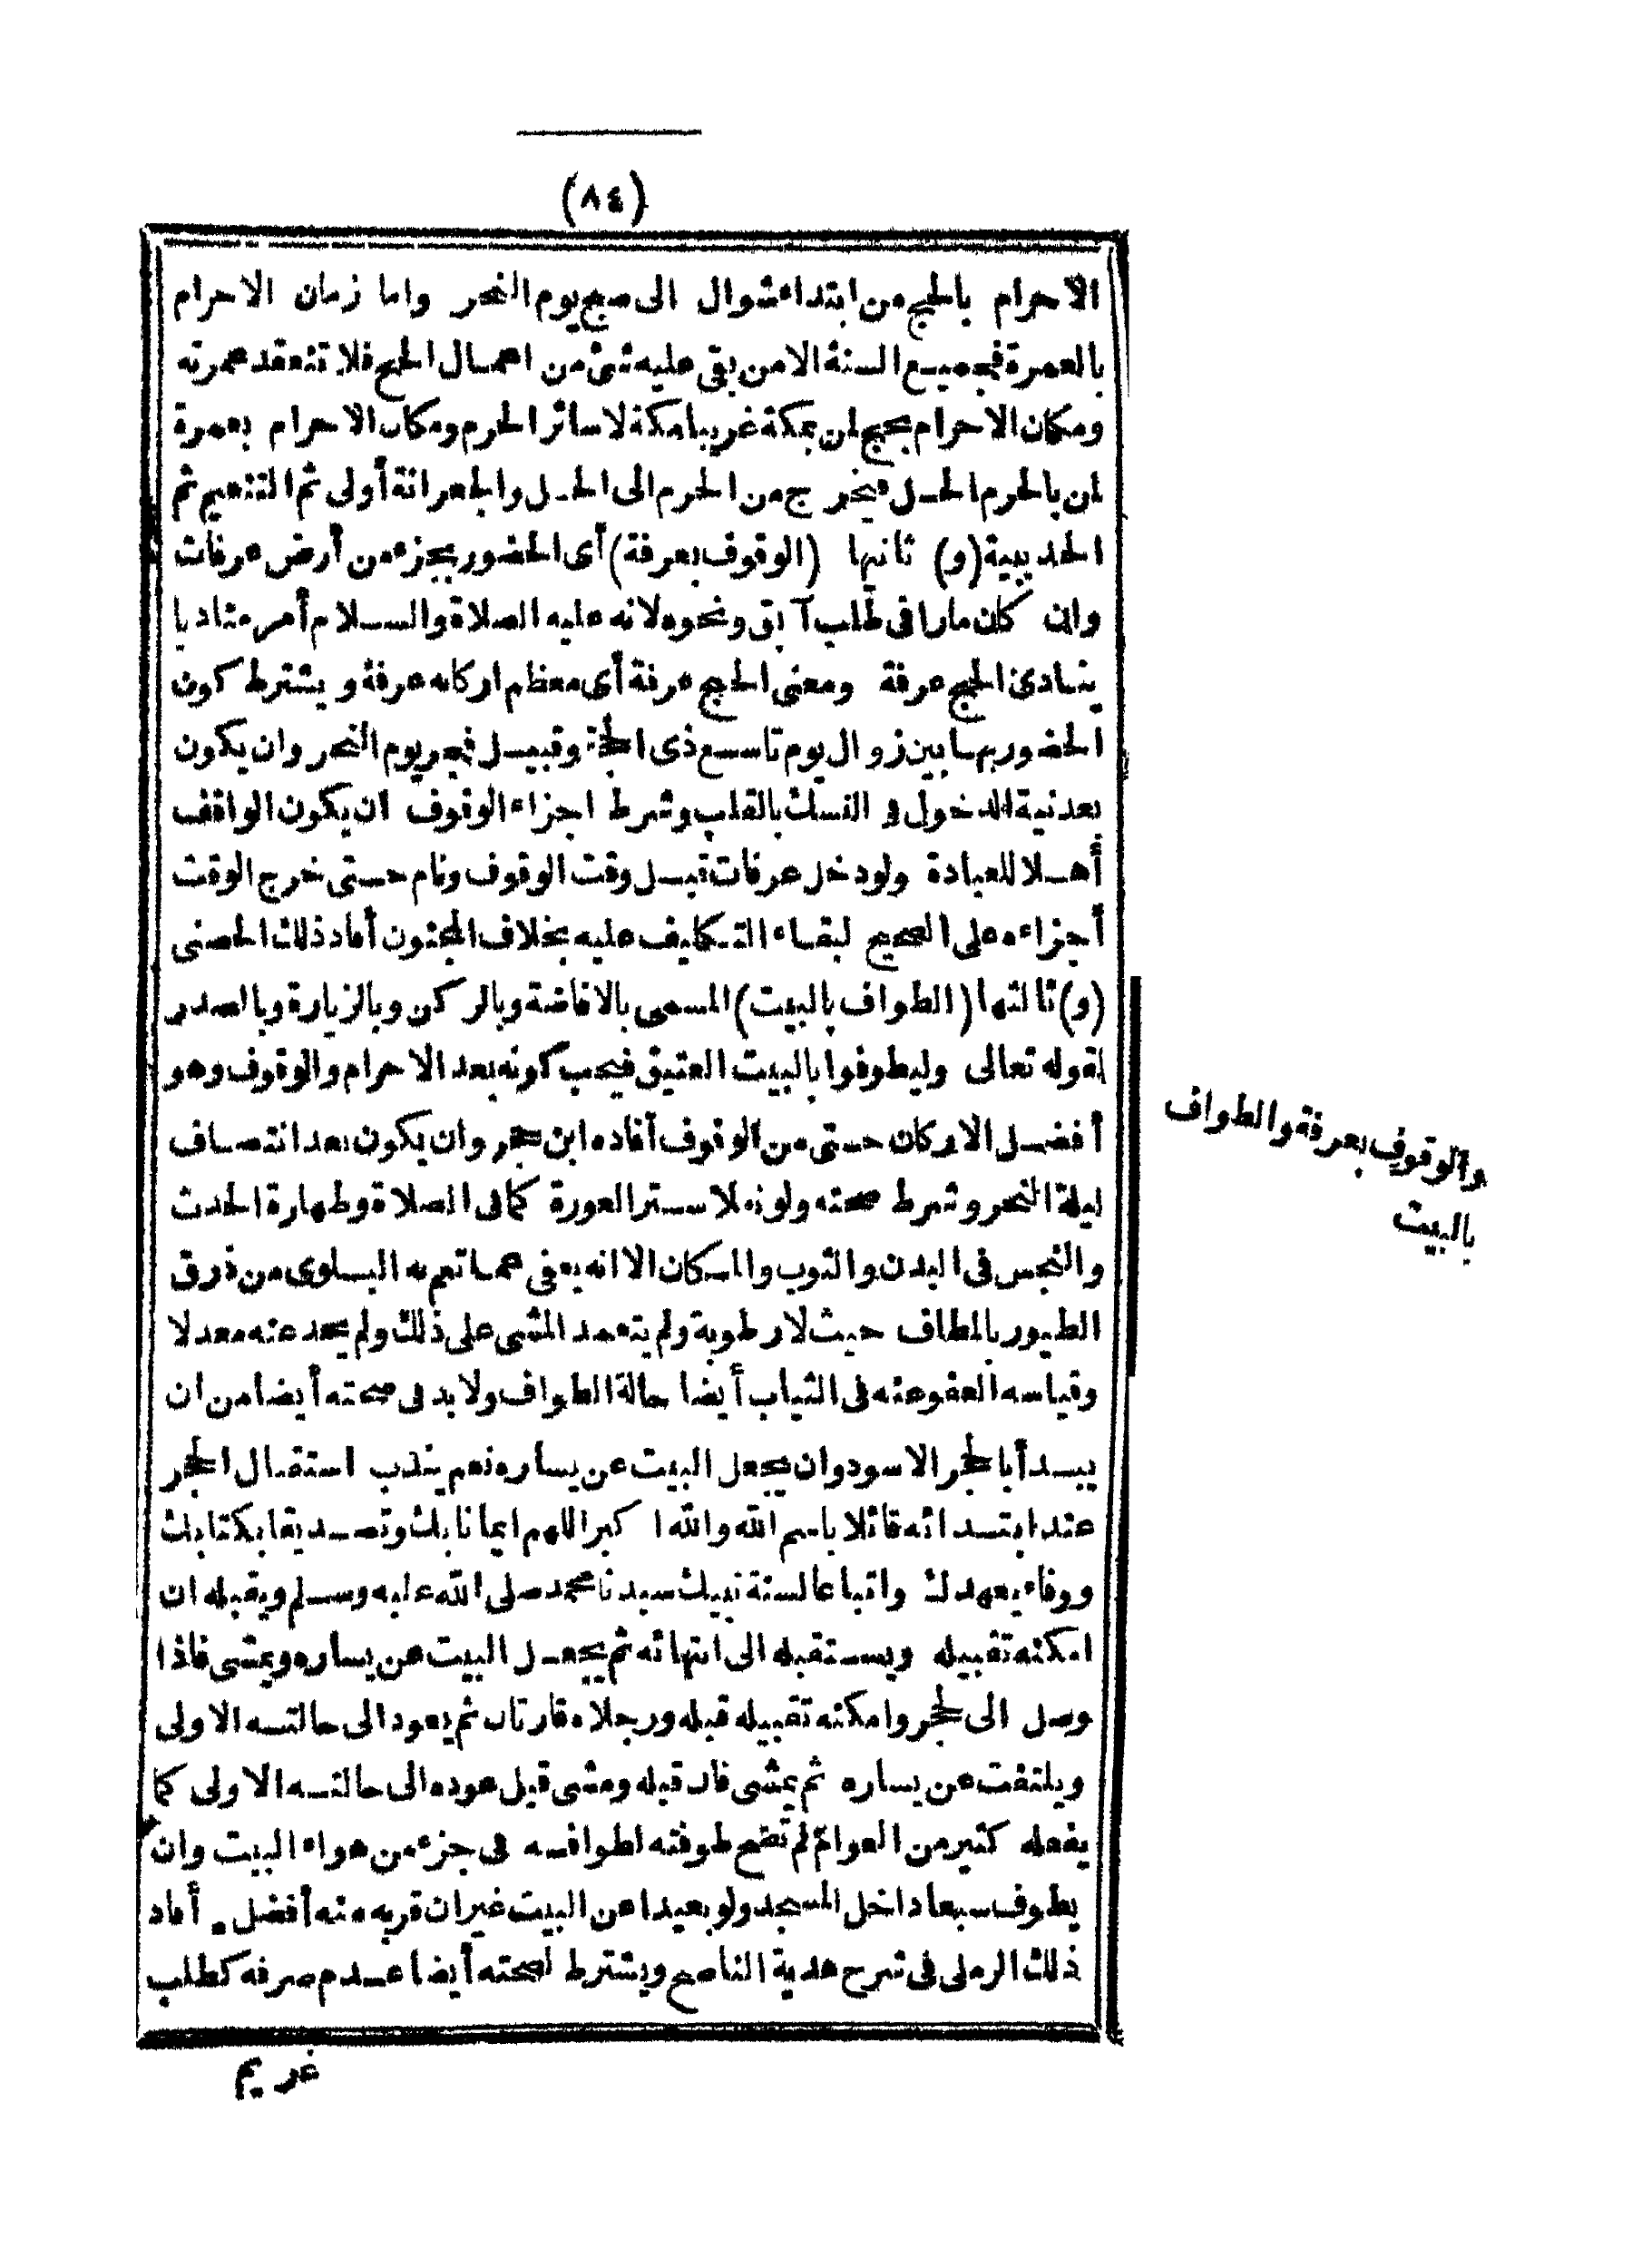 (٨٤)
الاحرام بالحج من ابتداء شوال الى صبح يوم النحر واما زمان الاحرام
بالعمرة فجميع السنة الا من بقى عليه شئ من اعمال الحج فلا تنعقد عمرته
ومكان الاحرام بحج لمن بمكة غريبا مكة لا سائر الحرم ومكان الاحرام بعمرة
لمن بالحرم الحل فيخرج من الحرم الى الحل والجعرانة أولى ثم التنعيم ثم
الحديبية (و) ثانيها (الوقوف بعرفة) أى الحضور بجزء من أرض عرفات
وان كان مارا فى طلب آبق ونحوه لانه عليه الصلاة والسلام أمر مناديا
ينادى الحج عرفة ومعنى الحج عرفة أى معظم اركانه عرفة ويشترط كون
الحضور بها بين زوال يوم تاسع ذى الحجة وقبيل فجر يوم النحر وان يكون
بعد نية الدخول فى النسك بالقلب وشرط اجزاء الوقوف ان يكون الواقف
أهلا للعبادة ولو دخل عرفات قبل وقت الوقوف ونام حتى خرج الوقت
أجزاءه على الصحيح لبقاء التكليف عليه بخلاف المجنون أفاد ذلك الحصنى
(و) ثالثها (الطواف بالبيت) المسمى بالافاضة وبالركن وبالزيارة وبالصدر
لقوله تعالى وليطوفوا بالبيت العتيق فيجب كونه بعد الاحرام والوقوف وهو
أفضل الاركان حتى من الوقوف أفاده ابن حجر وان يكون بعد انتصاف
ليلة النحر وشرط صحته ولو نفلا ستر العورة كما فى الصلاة وطهارة الحدث
والنجس فى البدن والثوب والمكان الا انه يعفى عما تعم به البلوى من ذرق
الطيور بالمطاف حيث لا رطوبة ولم يتعمد المشى على ذلك ولم يجد عنه معدلا
وقياسه العفو عنه فى الثياب أيضا حالة الطواف ولا بد فى صحته أيضا من ان
يبدأ بالحجر الاسود وان يجعل البيت عن يساره نعم يندب استقبال الحجر
عند ابتدائه قائلا باسم الله والله اكبر اللهم ايمانا بك وتصديقا بكتابك
ووفاء بعهدك واتباعا لسنة نبيك سيدنا محمد صلى الله عليه وسلم ويقبله ان
امكنه تقبيله ويستقبله الى انتهائه ثم يجعل البيت عن يساره ويمشى فاذا
وصل الى الحجر وامكنه تقبيله قبله ورجلاه قارتان ثم يعود الى حالته الاولى
ويلتفت عن يساره ثم يمشى فان قبله ومشى قبل عوده الى حالته الاولى كما
يفعله كثير من العوام لم تصح طوفته لطوافه فى جزء من هواء البيت وان
يطوف سبعا داخل المسجد ولو بعيدا عن البيت غير ان قربه منه أفضل. أفاد
ذلك الرملى فى شرح هدية الناصح ويشترط لصحته أيضا عدم صرفه كطلب
غريم
والوقوف بعرفة والطواف
بالبيت